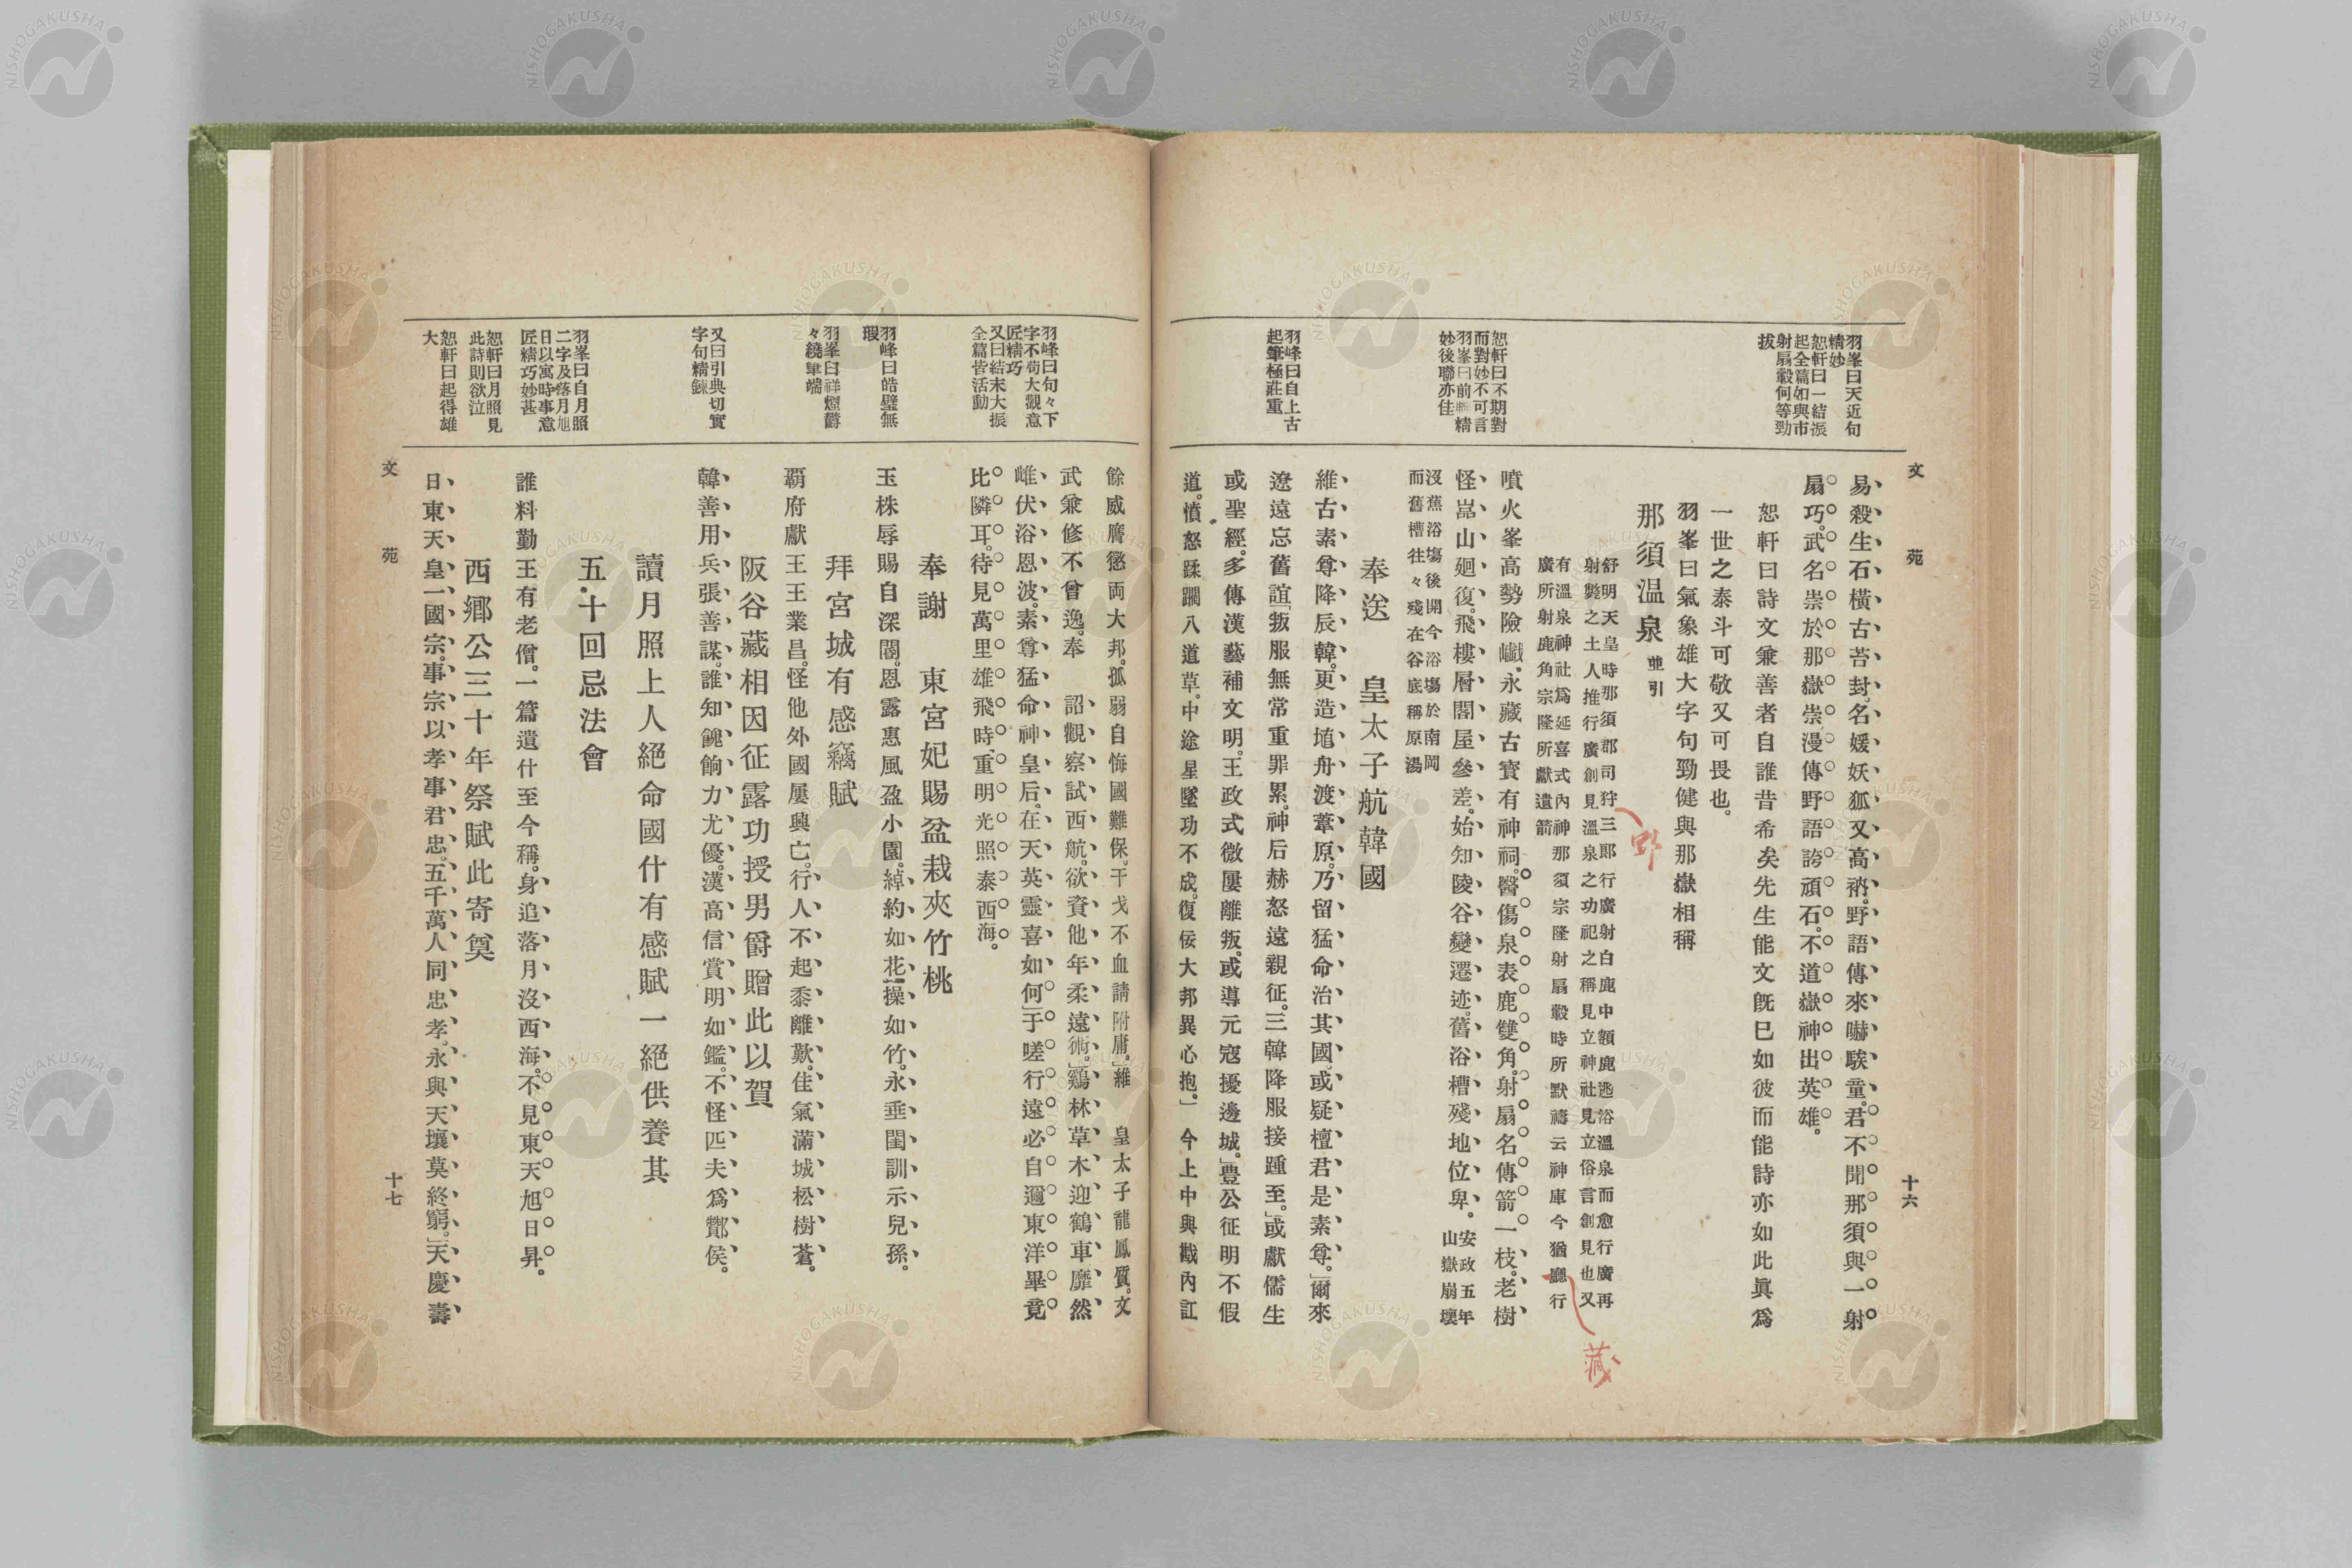 文苑
十六
羽峯曰天近句
精妙
恕軒曰一結振
起全篇如與市
射扇轂何等勁
拔
恕軒曰不期對
而對妙不可言
羽峯曰前聯精
妙後聯亦佳
羽峰曰自上古
起筆極莊重
易殺生石橫古苔封、名媛妖狐又高衲。野語傳來嚇騃童。君不聞那須與一射
扇巧。武名崇於那嶽崇。漫傳野語誇頑石。不道嶽神出英雄。
恕軒曰詩文兼善者自誰昔希矣先生能文既已如彼而能詩亦如此眞爲
一世之泰斗可敬又可畏也。
羽峯曰氣象雄大字句勁健與那嶽相稱
那須温泉 並引
舒明天皇時那須郡司狩三郎行廣射白鹿中額鹿逃浴溫泉而愈行廣再
射斃之土人推行廣創見溫泉之功祀之稱見立神社見立俗言創見也又
有溫泉神社爲延喜式內神 那須宗隆射扇轂時所默禱云神庫今猶廳行
廣所射鹿角宗隆所獻遺箭
野
藏
噴火峯高勢險巇。永藏古寳有神祠。醫傷泉表鹿雙角。射扇名傳箭一枝。老樹
怪嵓山廻復。飛樓層閣屋參差。始知陵谷變遷迹。舊浴槽殘地位卑。 安政五年
山嶽崩壞
沒蕉浴塲後開今浴塲於南岡
而舊槽往々殘在谷底稱原湯
奉送 皇太子航韓國
維古素尊降辰韓。更造埴舟渡葦原。乃留猛命治其國。或疑檀君是素尊。」爾來
遼遠忘舊誼「叛服無常重罪累。神后赫怒遠親征。三韓降服接踵至。」或獻儒生
或聖經。多傳漢藝補文明。王政式微屢離叛。或導元寇擾邊城。」豐公征明不假
道。憤怒蹂躙八道草。中途星墜功不成。復佞大邦異心抱。」 今上中興戡內訌
羽峰曰句々下
字不苟大觀意
匠精巧
又曰結末大振
全篇皆活動
羽峰曰皓璧無
瑕
羽峯曰祥煙欝
々繞筆端
又曰引典切實
字句精鍊
羽峯曰自月照
二字及落月旭
日以寓時事意
匠精巧妙甚
恕軒曰月照見
此詩則欲泣
恕軒曰起得雄
大
餘威膺懲両大邦。孤弱自悔國難保。干戈不血請附庸。」維 皇太子龍鳳質。文
武兼修不曾逸。奉 詔觀察試西航。欲資他年柔遠術。」鷄林草木迎鶴車靡然
雌伏浴恩波。素尊猛命神皇后。在天英靈喜如何」于嗟行遠必自邇東洋畢竟
比隣耳。待見萬里雄飛時。重明光照泰西海。
奉謝 東宮妃賜盆栽夾竹桃
玉株辱賜自深閤。恩露惠風盈小園。綽約如花操如竹。永垂閨訓示兒孫。
拜宮城有感竊賦
覇府獻王王業昌。怪他外國屢興亡。行人不起黍離歎。佳氣滿城松樹蒼。
阪谷藏相因征露功授男爵贈此以賀
韓善用兵張善謀。誰知餽餉力尤優。漢高信賞明如鑑。不怪匹夫爲酇侯。
讀月照上人絕命國什有感賦一絕供養其
五十回忌法會
誰料勤王有老僧。一篇遺什至今稱。身追落月沒西海。不見東天旭日昇。
西鄉公三十年祭賦此寄奠
日東天皇一國宗。事宗以孝事君忠。五千萬人同忠孝。永與天壤莫終窮。」天慶壽
文苑
十七